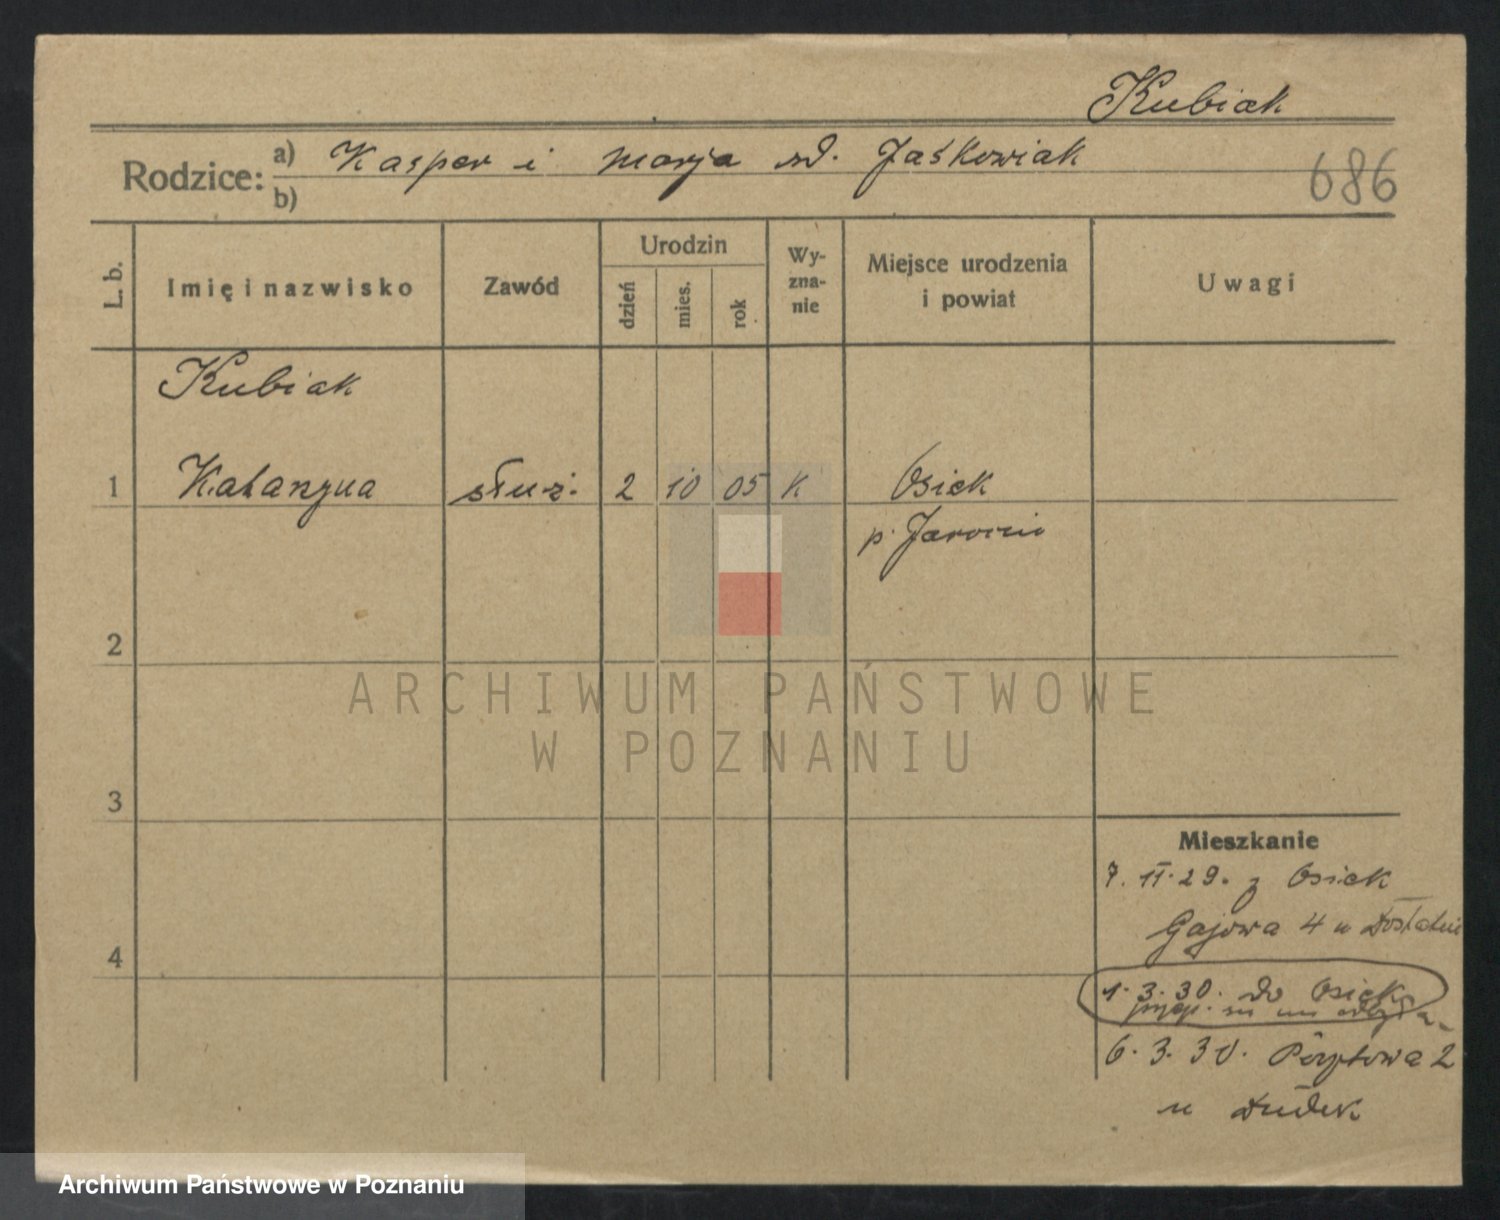 Kubiak
Rodzice: a) Kasper i Marja zd. Jaśkowiak
b)
686
L. b.
Imię i nazwisko
Zawód
Urodzin
dzień
mies.
rok
Wy-
zna-
nie
Miejsce urodzenia
i powiat
Uwagi
Kubiak
1 Katarzyna służ. 2 10 05 K Osiek
p. Jarocin
2
ARCHIWUM PAŃSTWOWE
W POZNANIU
3
Mieszkanie
7. 11. 29. z Osiek
Gajowa 4 u
4
1. 3. 30. do Osiek
6. 3. 30. 2
u Dudek
Archiwum Państwowe w Poznaniu